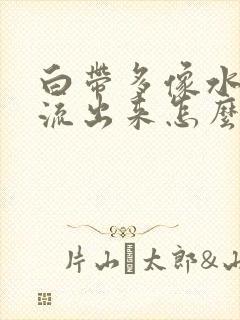 白帶多像水
流出来怎麼
片山 太郎&山